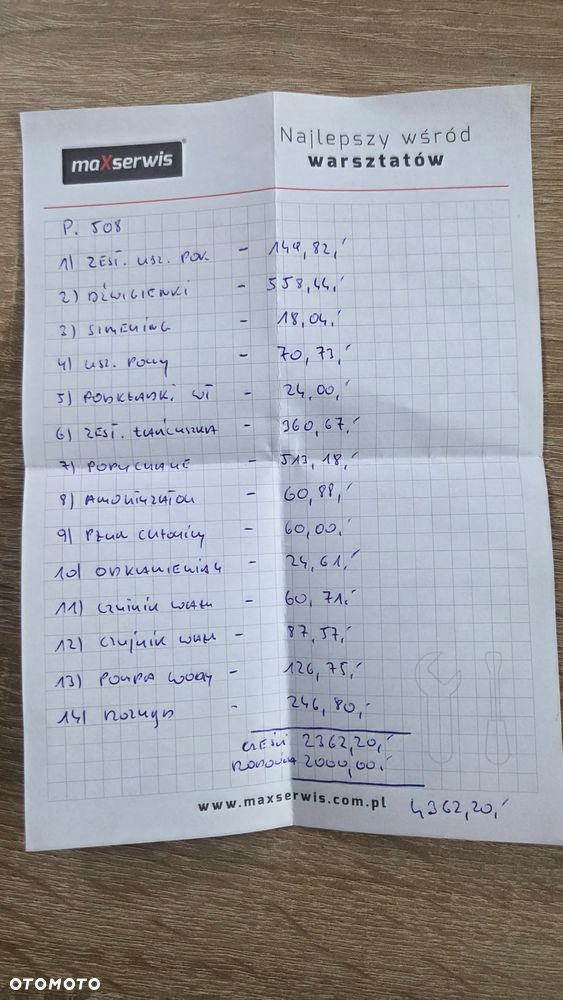 maXserwis
Najlepszy wśród
warsztatów
P. 508
1) ZEST. USZ. POK. - 149,82,-
2) DŹWIGIENKI - 558,44,-
3) SIMERING - 18,04,-
4) USZ. POMY - 70,73,-
5) PODKŁADKI WT - 24,00,-
6) ZEST. ŁAŃCUSZKA - 360,67,-
7) POPYCHACZE - 513,18,-
8) - 60,88,-
9) PŁYN CHŁODNICY - 60,00,-
10) ODKAMIENIACZ - 24,61,-
11) CZUJNIK WAŁU - 60,71,-
12) CZUJNIK WAŁ - 87,57,-
13) POMPA WODY - 126,75,-
14) ROZRZĄD - 246,80,-
CZĘŚCI 2362,20,-
ROBOCIZNA 2000,00,-
www.maxserwis.com.pl 4362,20,-
OTOMOTO